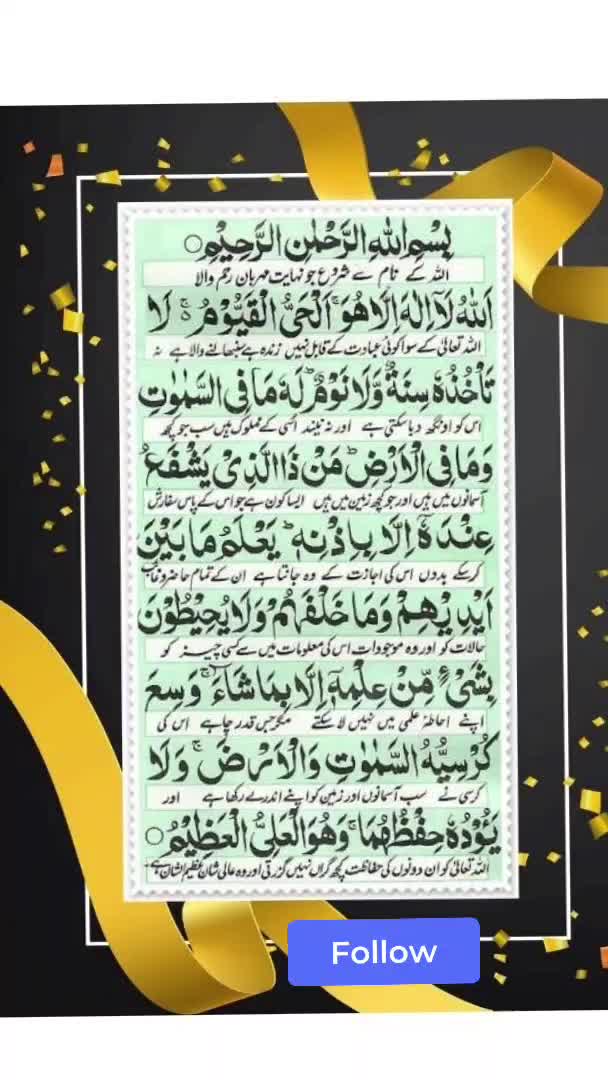 بِسْمِ اللهِ الرَّحْمٰنِ الرَّحِيْمِ ○
اللہ کے نام سے شروع جو نہایت مہربان رحم والا
اَللهُ لَآ اِلٰهَ اِلَّا هُوَ ۚ اَلْحَيُّ الْقَيُّوْمُ ۬ۚ لَا
اللہ تعالیٰ کے سوا کوئی عبادت کے قابل نہیں زندہ ہے سنبھالنے والا ہے نہ
تَاْخُذُهٗ سِنَةٌ وَّلَا نَوْمٌ ؕ لَهٗ مَا فِي السَّمٰوٰتِ
اس کو اونگھ دبا سکتی ہے اور نہ نیند اسی کے مملوک ہیں سب جو کچھ
وَمَا فِي الْاَرْضِ ؕ مَنْ ذَا الَّذِيْ يَشْفَعُ
آسمانوں میں ہیں اور جو کچھ زمین میں ہیں ایسا کون ہے جو اس کے پاس سفارش
عِنْدَهٗٓ اِلَّا بِاِذْنِهٖ ؕ يَعْلَمُ مَا بَيْنَ
کر سکے بدوں اس کی اجازت کے وہ جانتا ہے ان کے تمام حاضر و غائب
اَيْدِيْهِمْ وَمَا خَلْفَهُمْ ۚ وَلَا يُحِيْطُوْنَ
حالات کو اور وہ موجودات اس کی معلومات میں سے کسی چیز کو
بِشَيْءٍ مِّنْ عِلْمِهٖٓ اِلَّا بِمَا شَآءَ ۚ وَسِعَ
اپنے احاطۂ علمی میں نہیں لا سکتے مگر جس قدر چاہے اس کی
كُرْسِيُّهُ السَّمٰوٰتِ وَالْاَرْضَ ۚ وَلَا
کرسی نے سب آسمانوں اور زمین کو اپنے اندر لے رکھا ہے اور
يَـُٔوْدُهٗ حِفْظُهُمَا ۚ وَهُوَ الْعَلِيُّ الْعَظِيْمُ ○
اللہ تعالیٰ کو ان دونوں کی حفاظت کچھ گراں نہیں گزرتی اور وہ عالی شان عظیم الشان ہے
Follow